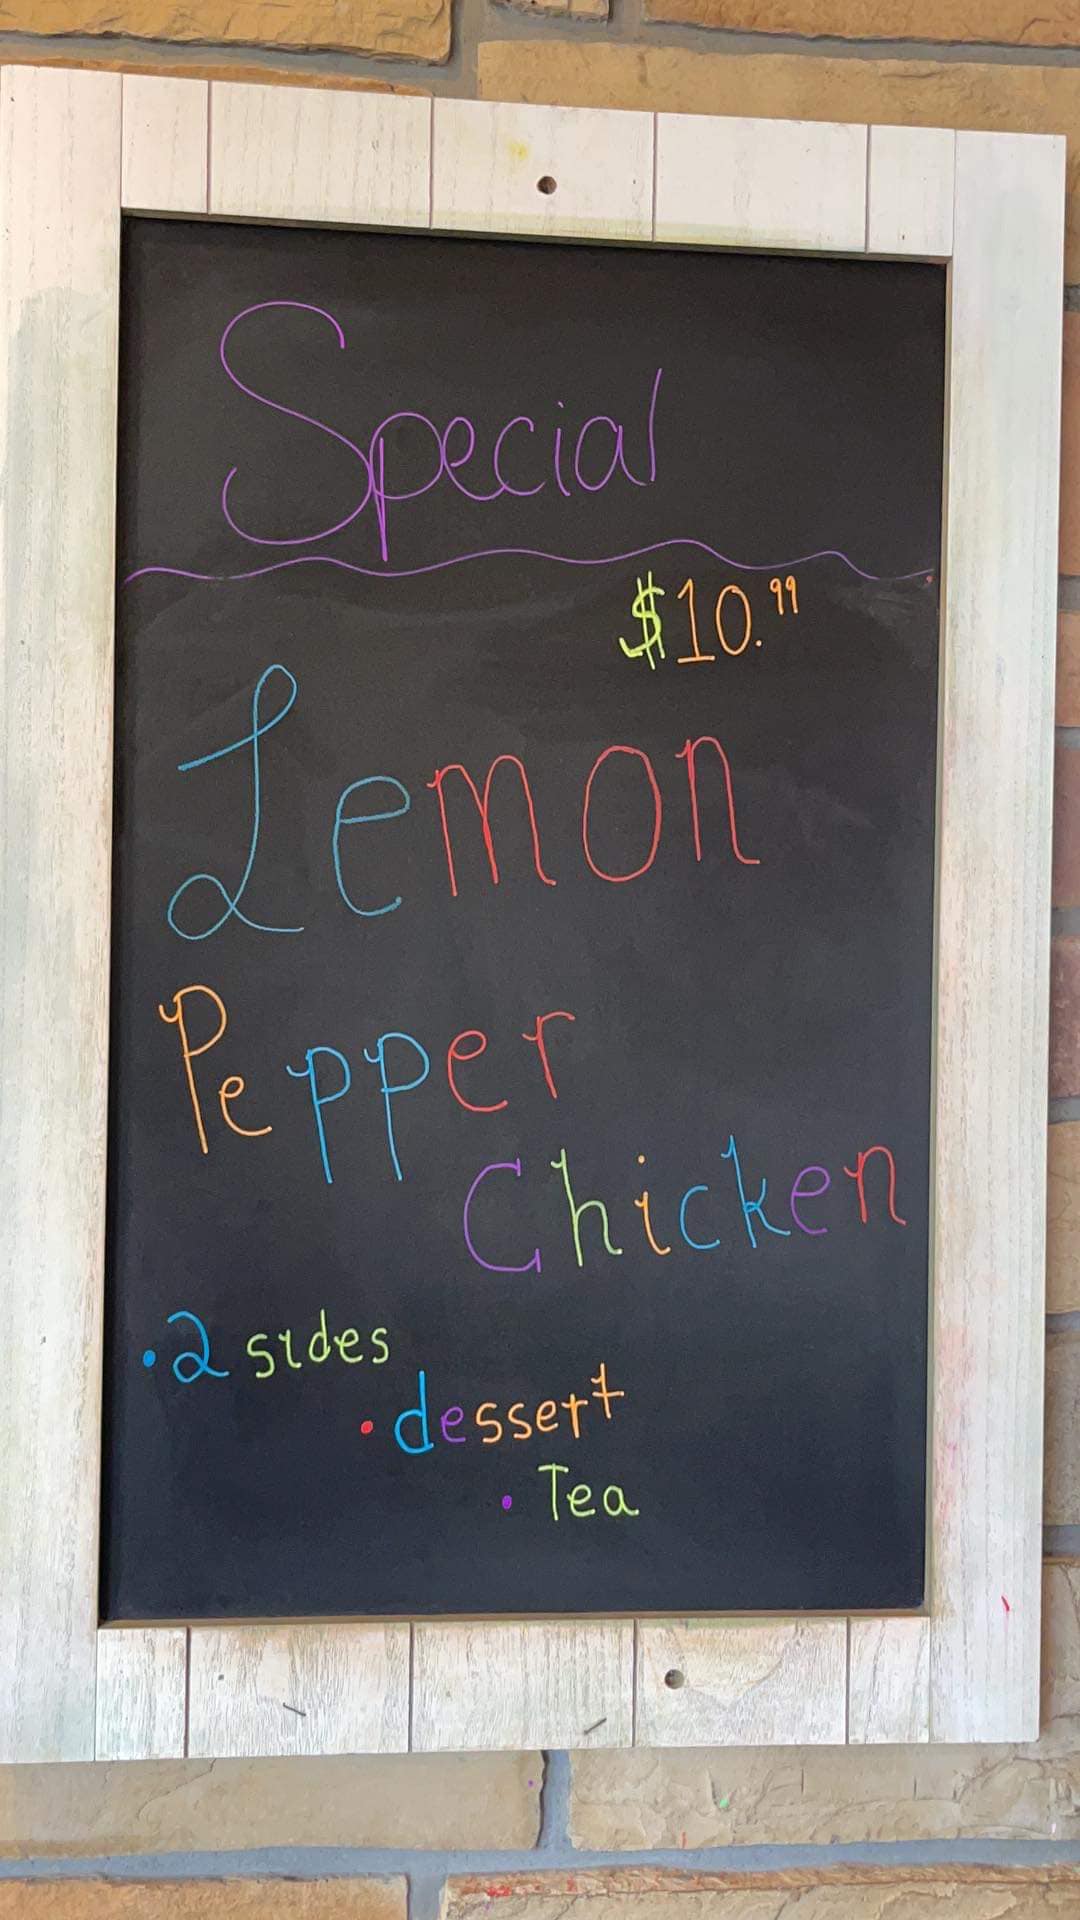 Special
$10.99
Lemon
Pepper
Chicken
• 2 sides
• dessert
• Tea